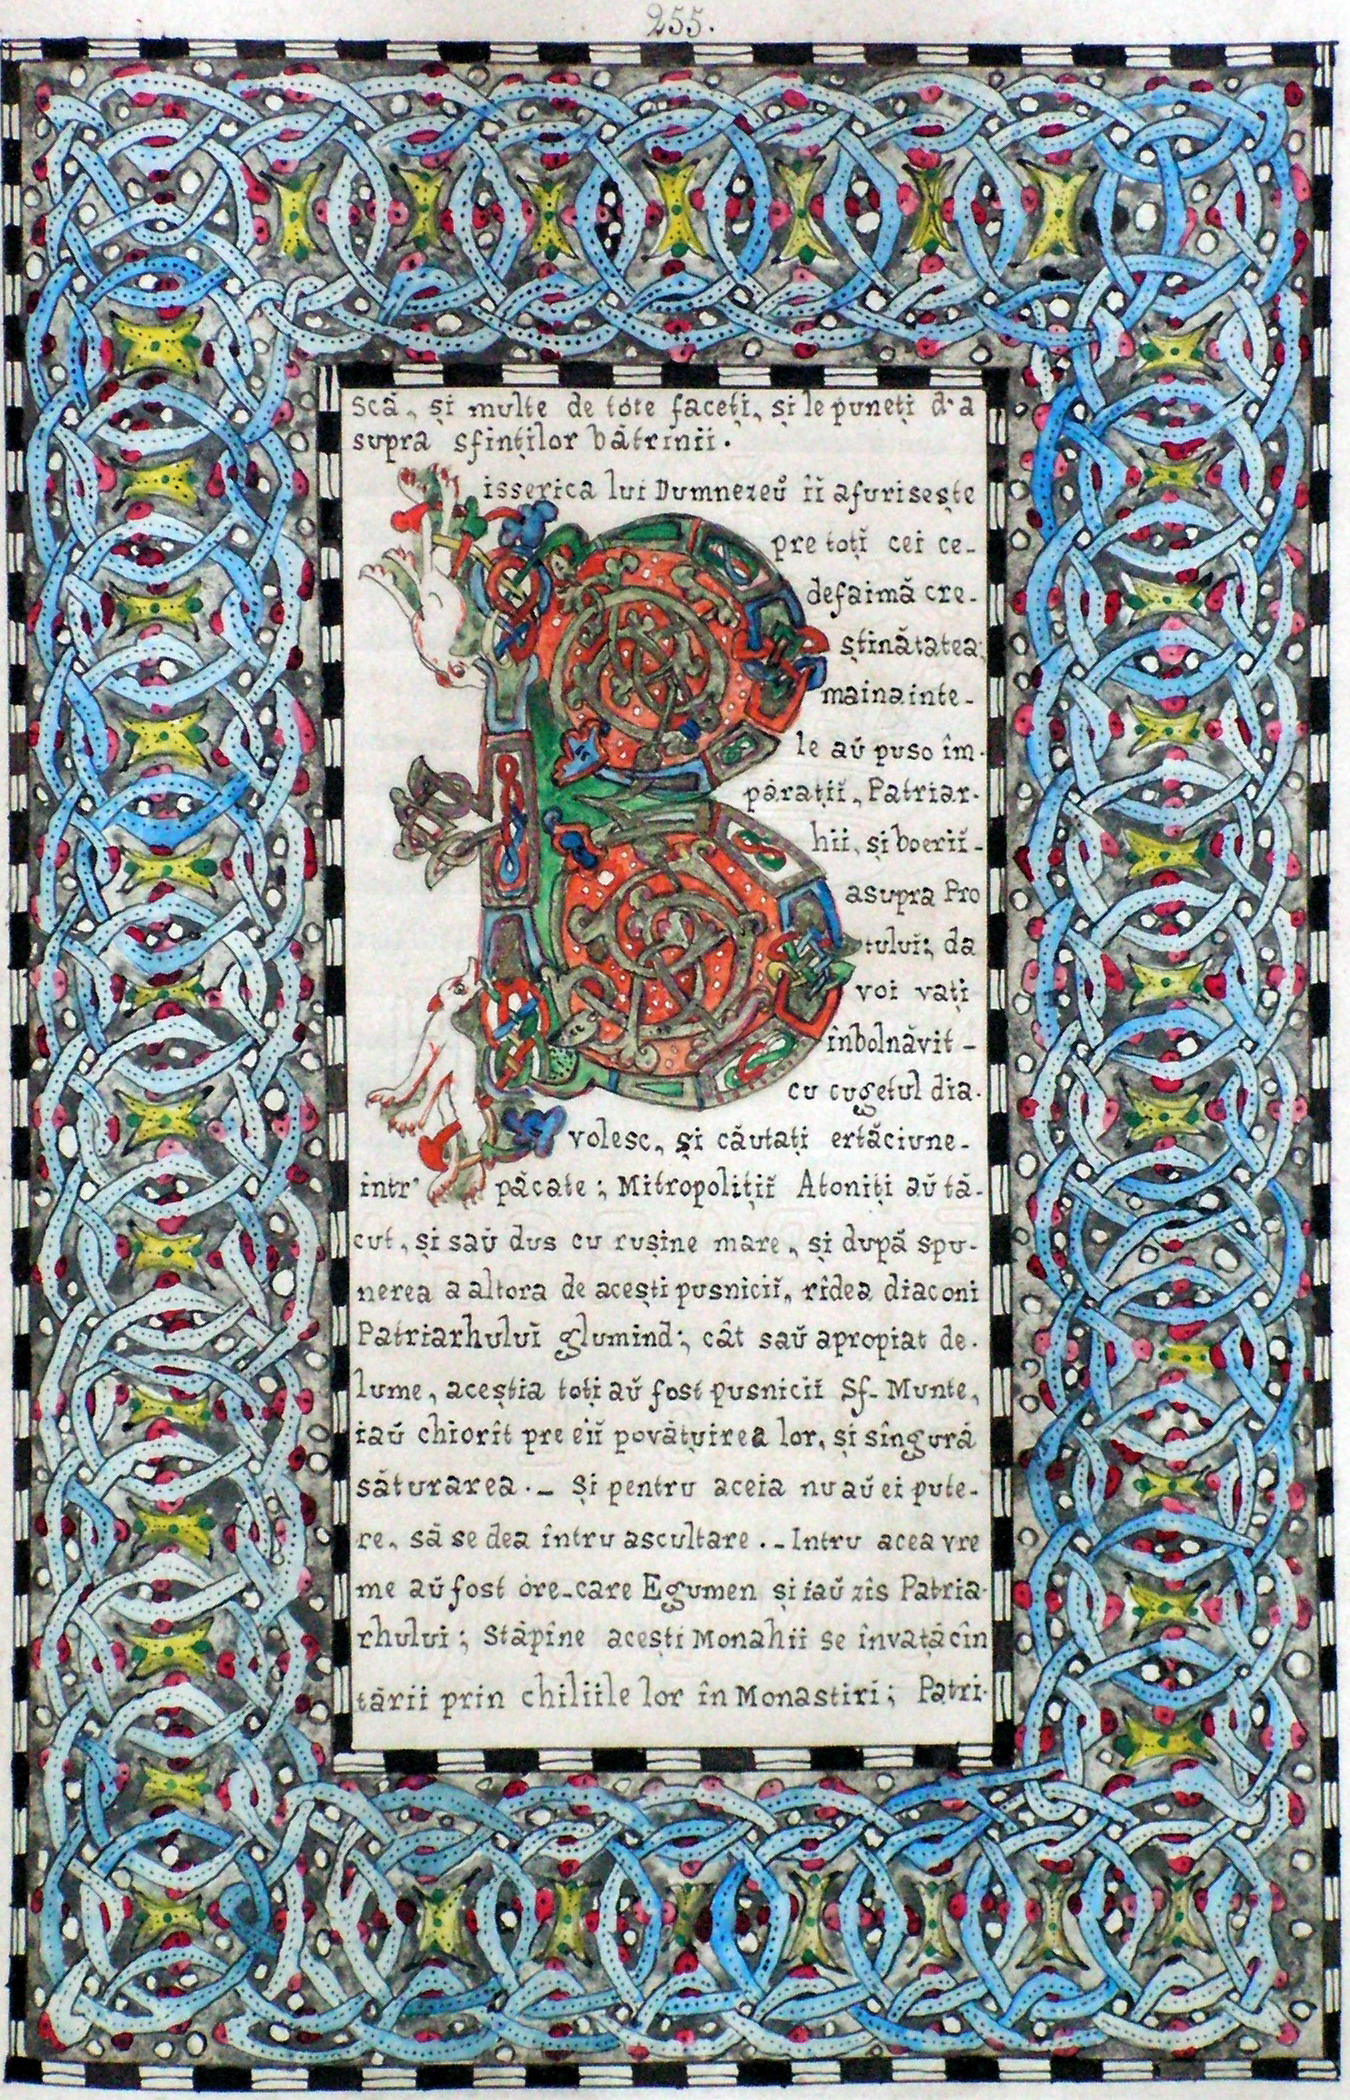 255.
scă, și multe de tóte faceți, și le puneți d'a
supra sfinților bătrinii.
Bisserica lui Dumnezeŭ îĭ afurisește
pre toțĭ cei ce-
defaimă cre-
știnătatea;
mainainte-
le aŭ puso îm-
părațiĭ, Patriar-
hii, și boeriĭ-
asupra Pro
tuluĭ; da
voi vați
înbolnăvit-
cu cugetul dia-
volesc, și căutați ertăciune-
intr' păcate; Mitropolițiĭ Atoniți aŭ tă-
cut, și saŭ dus cu rușine mare, și după spu-
nerea a altora de acești pusniciĭ, rîdea diaconi
Patriarhuluĭ glumind; cât saŭ apropiat de-
lume, aceștia toți aŭ fost pusniciĭ Sf- Munte,
iaŭ chiorît pre eiĭ povățuirea lor, și singură
săturarea.- Și pentru aceia nu aŭ ei pute-
re, să se dea întru ascultare.- Intru acea vre
me aŭ fost óre-care Egumen și iaŭ zîs Patria-
rhului; Stăpîne acești Monahii se învață cîn
tării prin chiliile lor în Monastiri; Patri-